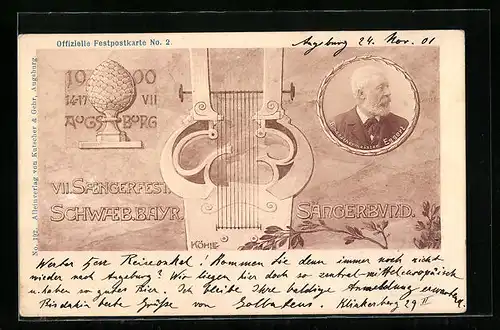 Offizielle Festpostkarte No. 2.
Augsburg 24. Nov. 01
No. 127. Alleinverlag von Kutscher & Gehr, Augsburg
1900
14-17 VII
AUGSBURG
Bundesliedermeister Eggert
VII. SÆNGERFEST.
SCHWÆB. BAYR. SÄNGERBUND.
KÖHLE
Werter Herr Reiseonkel! Kommen Sie denn immer noch nicht
wieder nach Augsburg? Wir liegen hier doch so zentral-mitteleuropäisch
u. haben so gutes Bier. Ich bleibe Ihre baldige Anmeldung erwartend
Bis dahin beste Grüße von Klinkerberg 29 II